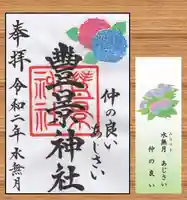 奉拝
豊景神社
仲の良い
あじさい
令和二年水無月
水無月 あじさい
仲の良い